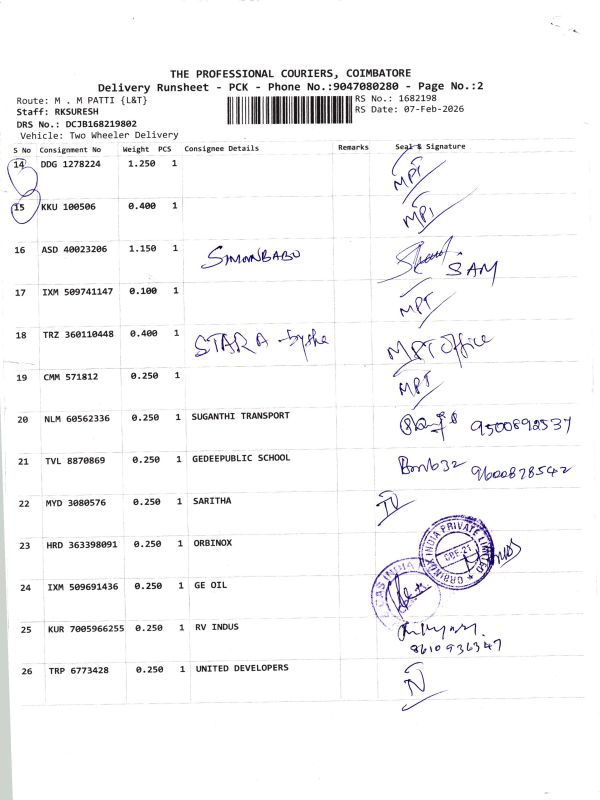 THE PROFESSIONAL COURIERS, COIMBATORE
Delivery Runsheet - PCK - Phone No.:9047080280 - Page No.:2
Route: M . M PATTI {L&T} RS No.: 1682198
Staff: RKSURESH RS Date: 07-Feb-2026
DRS No.: DCJB168219802
Vehicle: Two Wheeler Delivery
S No Consignment No Weight PCS Consignee Details Remarks Seal & Signature
14 DDG 1278224 1.250 1 MPT
15 KKU 100506 0.400 1 MPT
16 ASD 40023206 1.150 1 SIMONBABU SAM
17 IXM 509741147 0.100 1 MPT
18 TRZ 360110448 0.400 1 STAR A MPT Office
19 CMM 571812 0.250 1 MPT
20 NLM 60562336 0.250 1 SUGANTHI TRANSPORT 9500892537
21 TVL 8870869 0.250 1 GEDEEPUBLIC SCHOOL 9600878542
22 MYD 3080576 0.250 1 SARITHA
23 HRD 363398091 0.250 1 ORBINOX ORBINOX INDIA PRIVATE LIMITED CBE-21
24 IXM 509691436 0.250 1 GE OIL GAS INDIA
25 KUR 7005966255 0.250 1 RV INDUS
8610936347
26 TRP 6773428 0.250 1 UNITED DEVELOPERS